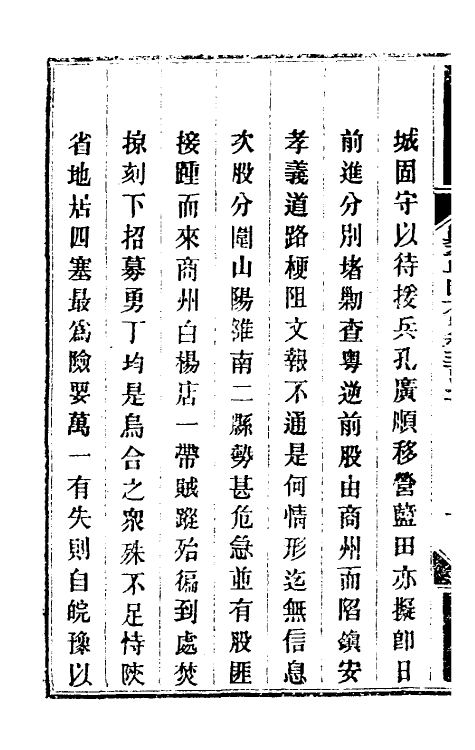 城固守以待援兵孔廣順移營藍田亦擬卽日
前進分別堵勦查粵逆前股由商州而陷鎮安
孝義道路梗阻文報不通是何情形迄無信息
次股分圍山陽雒南二縣勢甚危急並有股匪
接踵而來商州白楊店一帶賊蹤殆徧到處焚
掠刻下招募勇丁均是烏合之衆殊不足恃陝
省地居四塞最爲險要萬一有失則自皖豫以